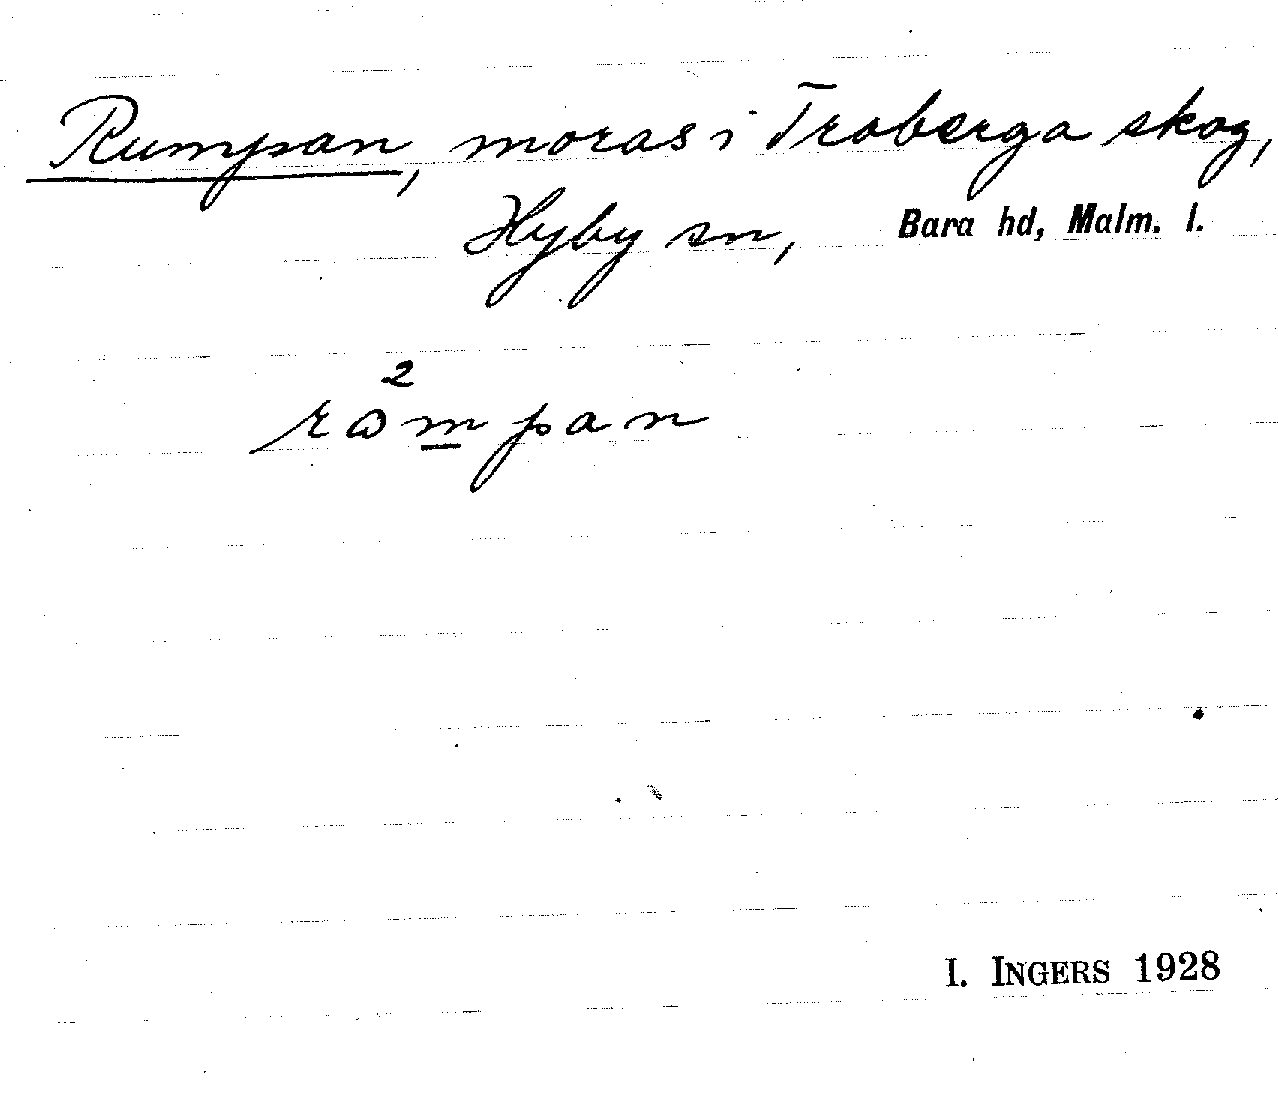 Rumpan, moras i Troberga skog,
Hyby sn, Bara hd, Malm. l.
2
rωmpan
I. INGERS 1928